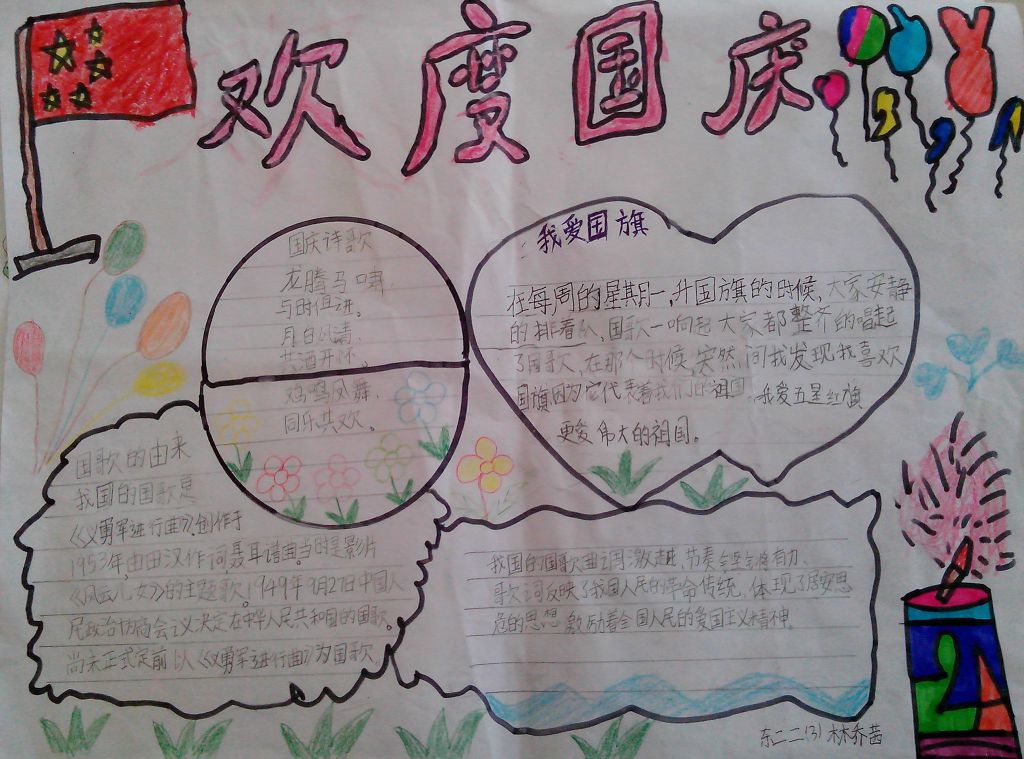 欢度国庆
国庆诗歌
龙腾马啸,
与时俱进。
月白风清,
共酒开怀。
鸡鸣凤舞,
同乐共欢。
我爱国旗
在每周的星期一,升国旗的时候,大家安静
的排着队,国歌一响起大家都整齐的唱起
了国歌,在那个时候,突然间我发现我喜欢
国旗因为它代表着我们的祖国。我爱五星红旗
更爱伟大的祖国。
国歌的由来
我国的国歌是
《义勇军进行曲》,创作于
1953年,由田汉作词聂耳谱曲当时是影片
《风云儿女》的主题歌。1949年9月27日中国人
民政治协商会议决定在中华人民共和国的国歌。
尚未正式定前以《义勇军进行曲》为国歌。
我国的国歌曲调激进,节奏铿锵有力、
歌词反映了我国人民的革命传统,体现了居安思
危的思想激励着全国人民的爱国主义精神。
东二二(3)林乔茜